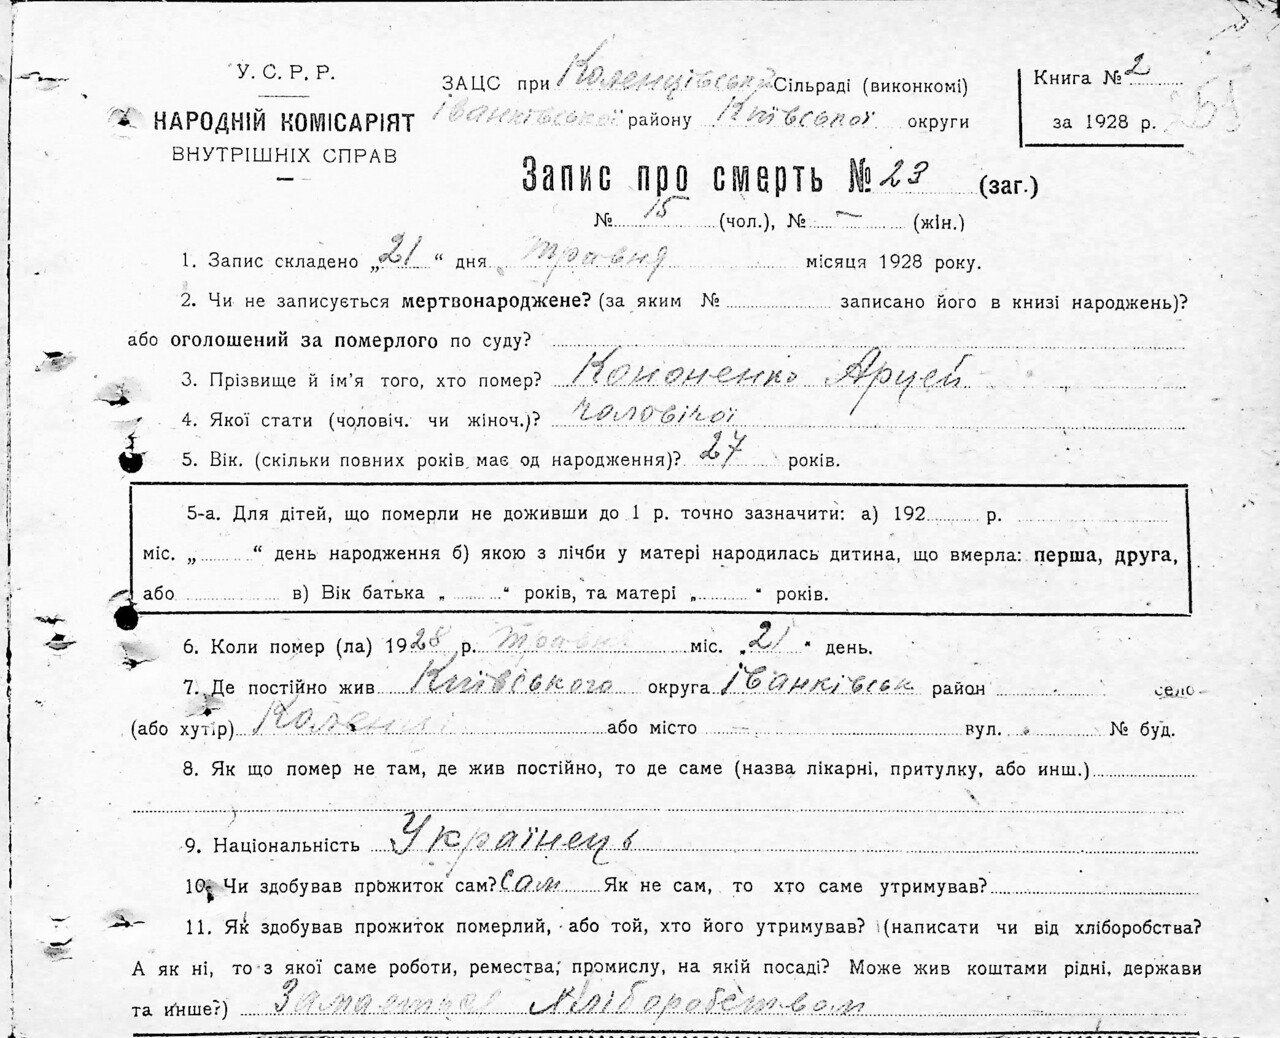 У. С. Р. Р.
НАРОДНІЙ КОМІСАРІЯТ
ВНУТРІШНІХ СПРАВ
ЗАЦС при Коленцівській Сільраді (виконкомі)
Іванківської району Київської округи
Книга № 2
за 1928 р.
Запис про смерть № 23 (заг.)
№ 15 (чол.), № — (жін.)
1. Запис складено „21“ дня травня місяця 1928 року.
2. Чи не записується мертвонароджене? (за яким № записано його в книзі народжень)?
або оголошений за померлого по суду?
3. Прізвище й ім'я того, хто помер? Кононенко
4. Якої стати (чоловіч. чи жіноч.)? чоловічої
5. Вік. (скільки повних років має од народження)? 27 років.
5-а. Для дітей, що померли не доживши до 1 р. точно зазначити: а) 192 р.
міс. „ “ день народження б) якою з лічби у матері народилась дитина, що вмерла: перша, друга,
або в) Вік батька „ “ років, та матері „ “ років.
6. Коли помер (ла) 1928 р. травня міс. „21“ день.
7. Де постійно жив Київського округа Іванківськ район село
(або хутір) Коленці або місто вул. № буд.
8. Як що помер не там, де жив постійно, то де саме (назва лікарні, притулку, або инш.)
9. Національність Українець
10. Чи здобував прожиток сам? Сам Як не сам, то хто саме утримував?
11. Як здобував прожиток померлий, або той, хто його утримував? (написати чи від хліборобства?
А як ні, то з якої саме роботи, ремества, промислу, на якій посаді? Може жив коштами рідні, держави
та инше?) Хліборобством